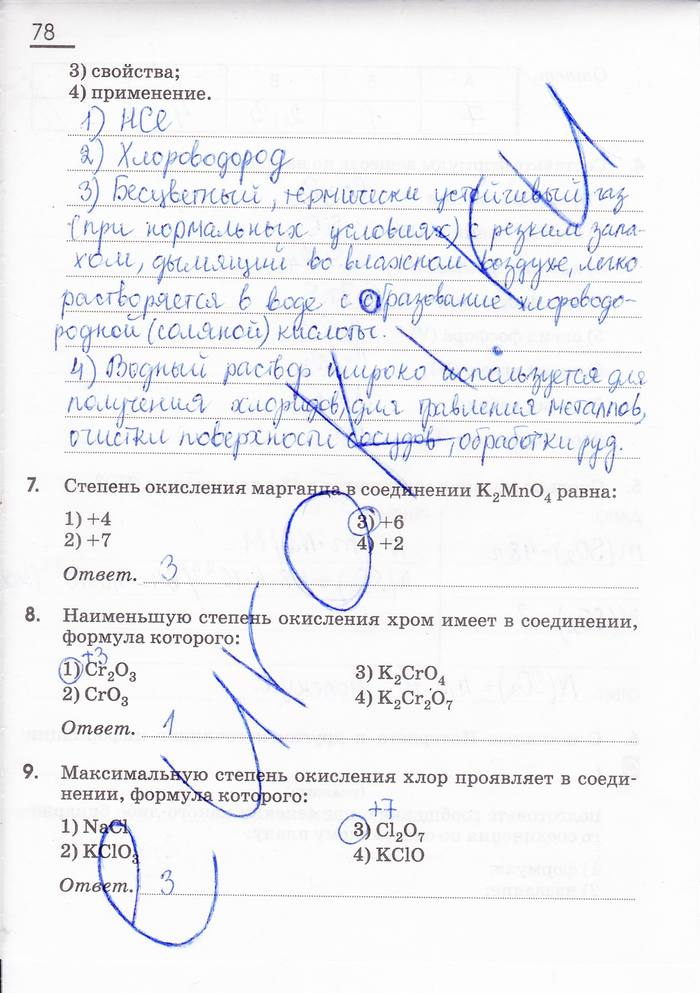 78
3) свойства;
4) применение.
1) HCl
2) Хлороводород
3) Бесцветный, термически устойчивый газ
(при нормальных условиях) с резким запа-
хом, дымящий во влажном воздухе, легко
растворяется в воде с образование хлороводо-
родной (соляной) кислоты.
4) Водный раствор широко используется для
получения хлоридов, для травления металлов,
очистки поверхности сосудов, обработки руд.
7. Степень окисления марганца в соединении K₂MnO₄ равна:
1) +4 3) +6
2) +7 4) +2
Ответ. 3
8. Наименьшую степень окисления хром имеет в соединении,
формула которого:
+3
1) Cr₂O₃ 3) K₂CrO₄
2) CrO₃ 4) K₂Cr₂O₇
Ответ. 1
9. Максимальную степень окисления хлор проявляет в соеди-
нении, формула которого:
+7
1) NaCl 3) Cl₂O₇
2) KClO₃ 4) KClO
Ответ. 3